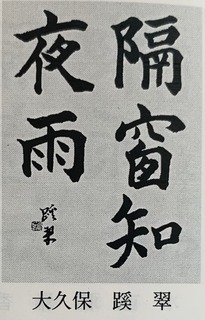 隔窗知
夜雨
蹊翠
大久保 蹊 翠